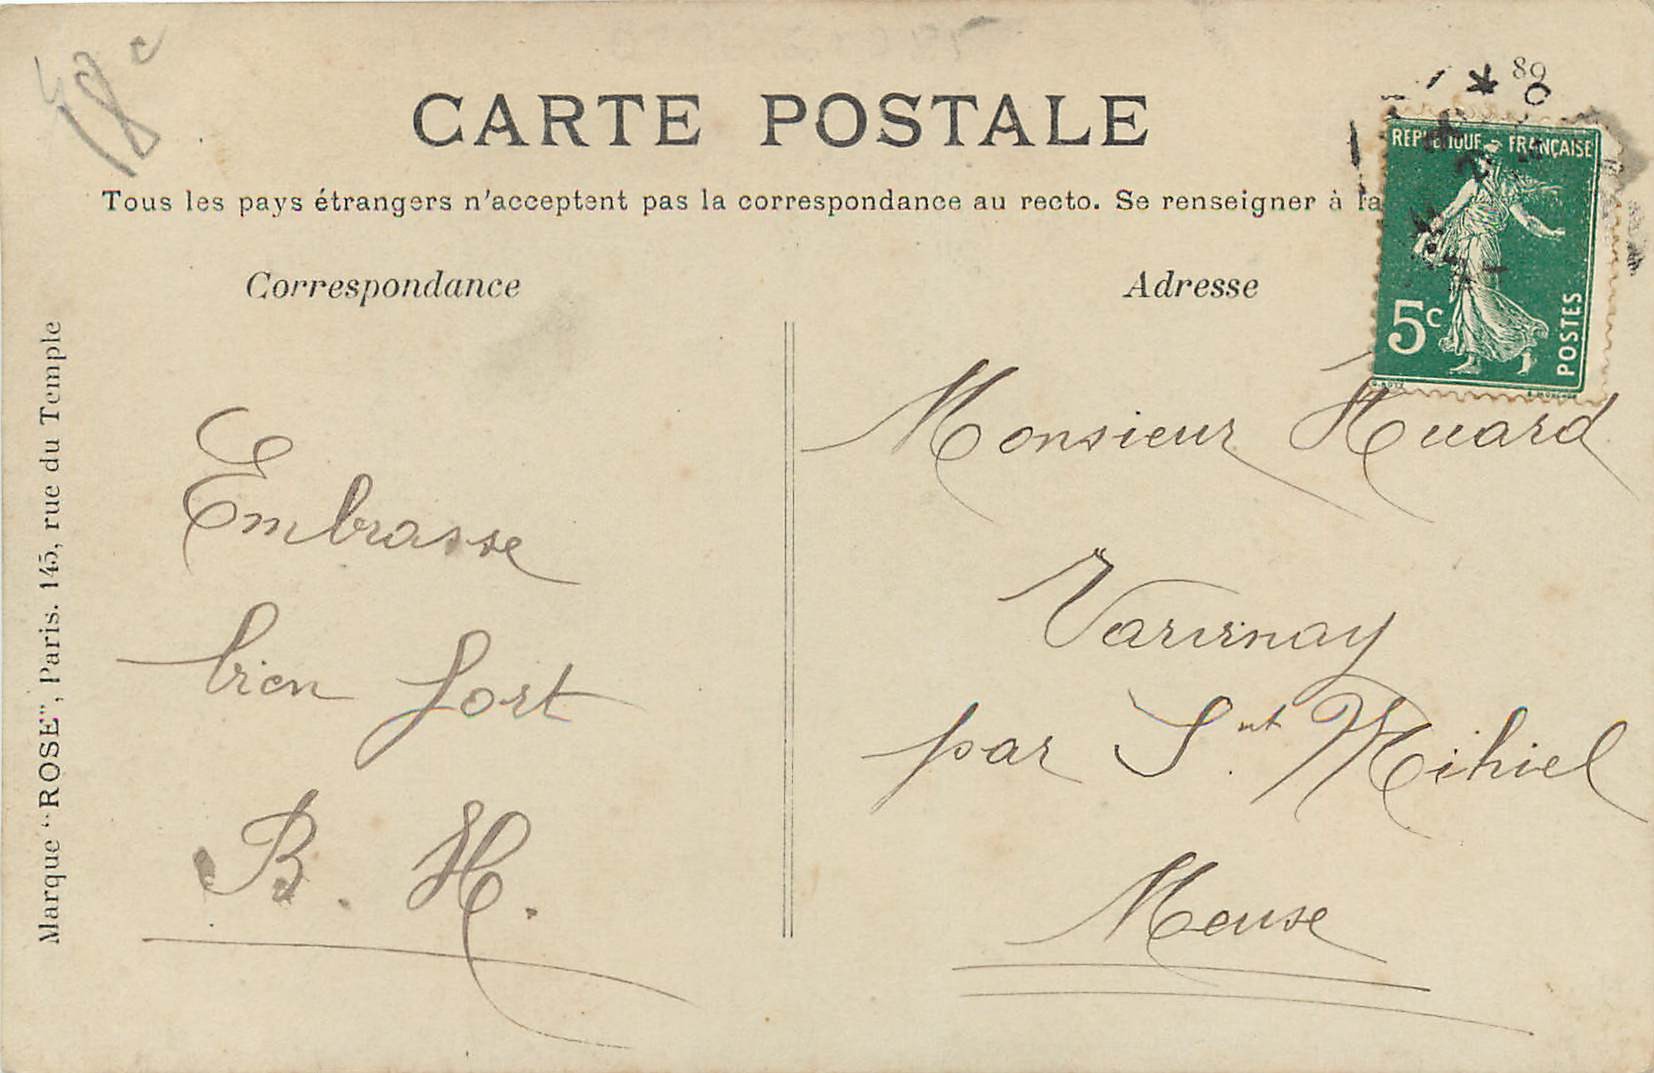 18 c
CARTE POSTALE
Tous les pays étrangers n'acceptent pas la correspondance au recto. Se renseigner à la
Correspondance
Adresse
Marque "ROSE", Paris. 145, rue du Temple
REPUBLIQUE FRANÇAISE
5c
POSTES
Embrasse
bien fort
B. H.
Monsieur Huard
Varvinay
par St Mihiel
Meuse